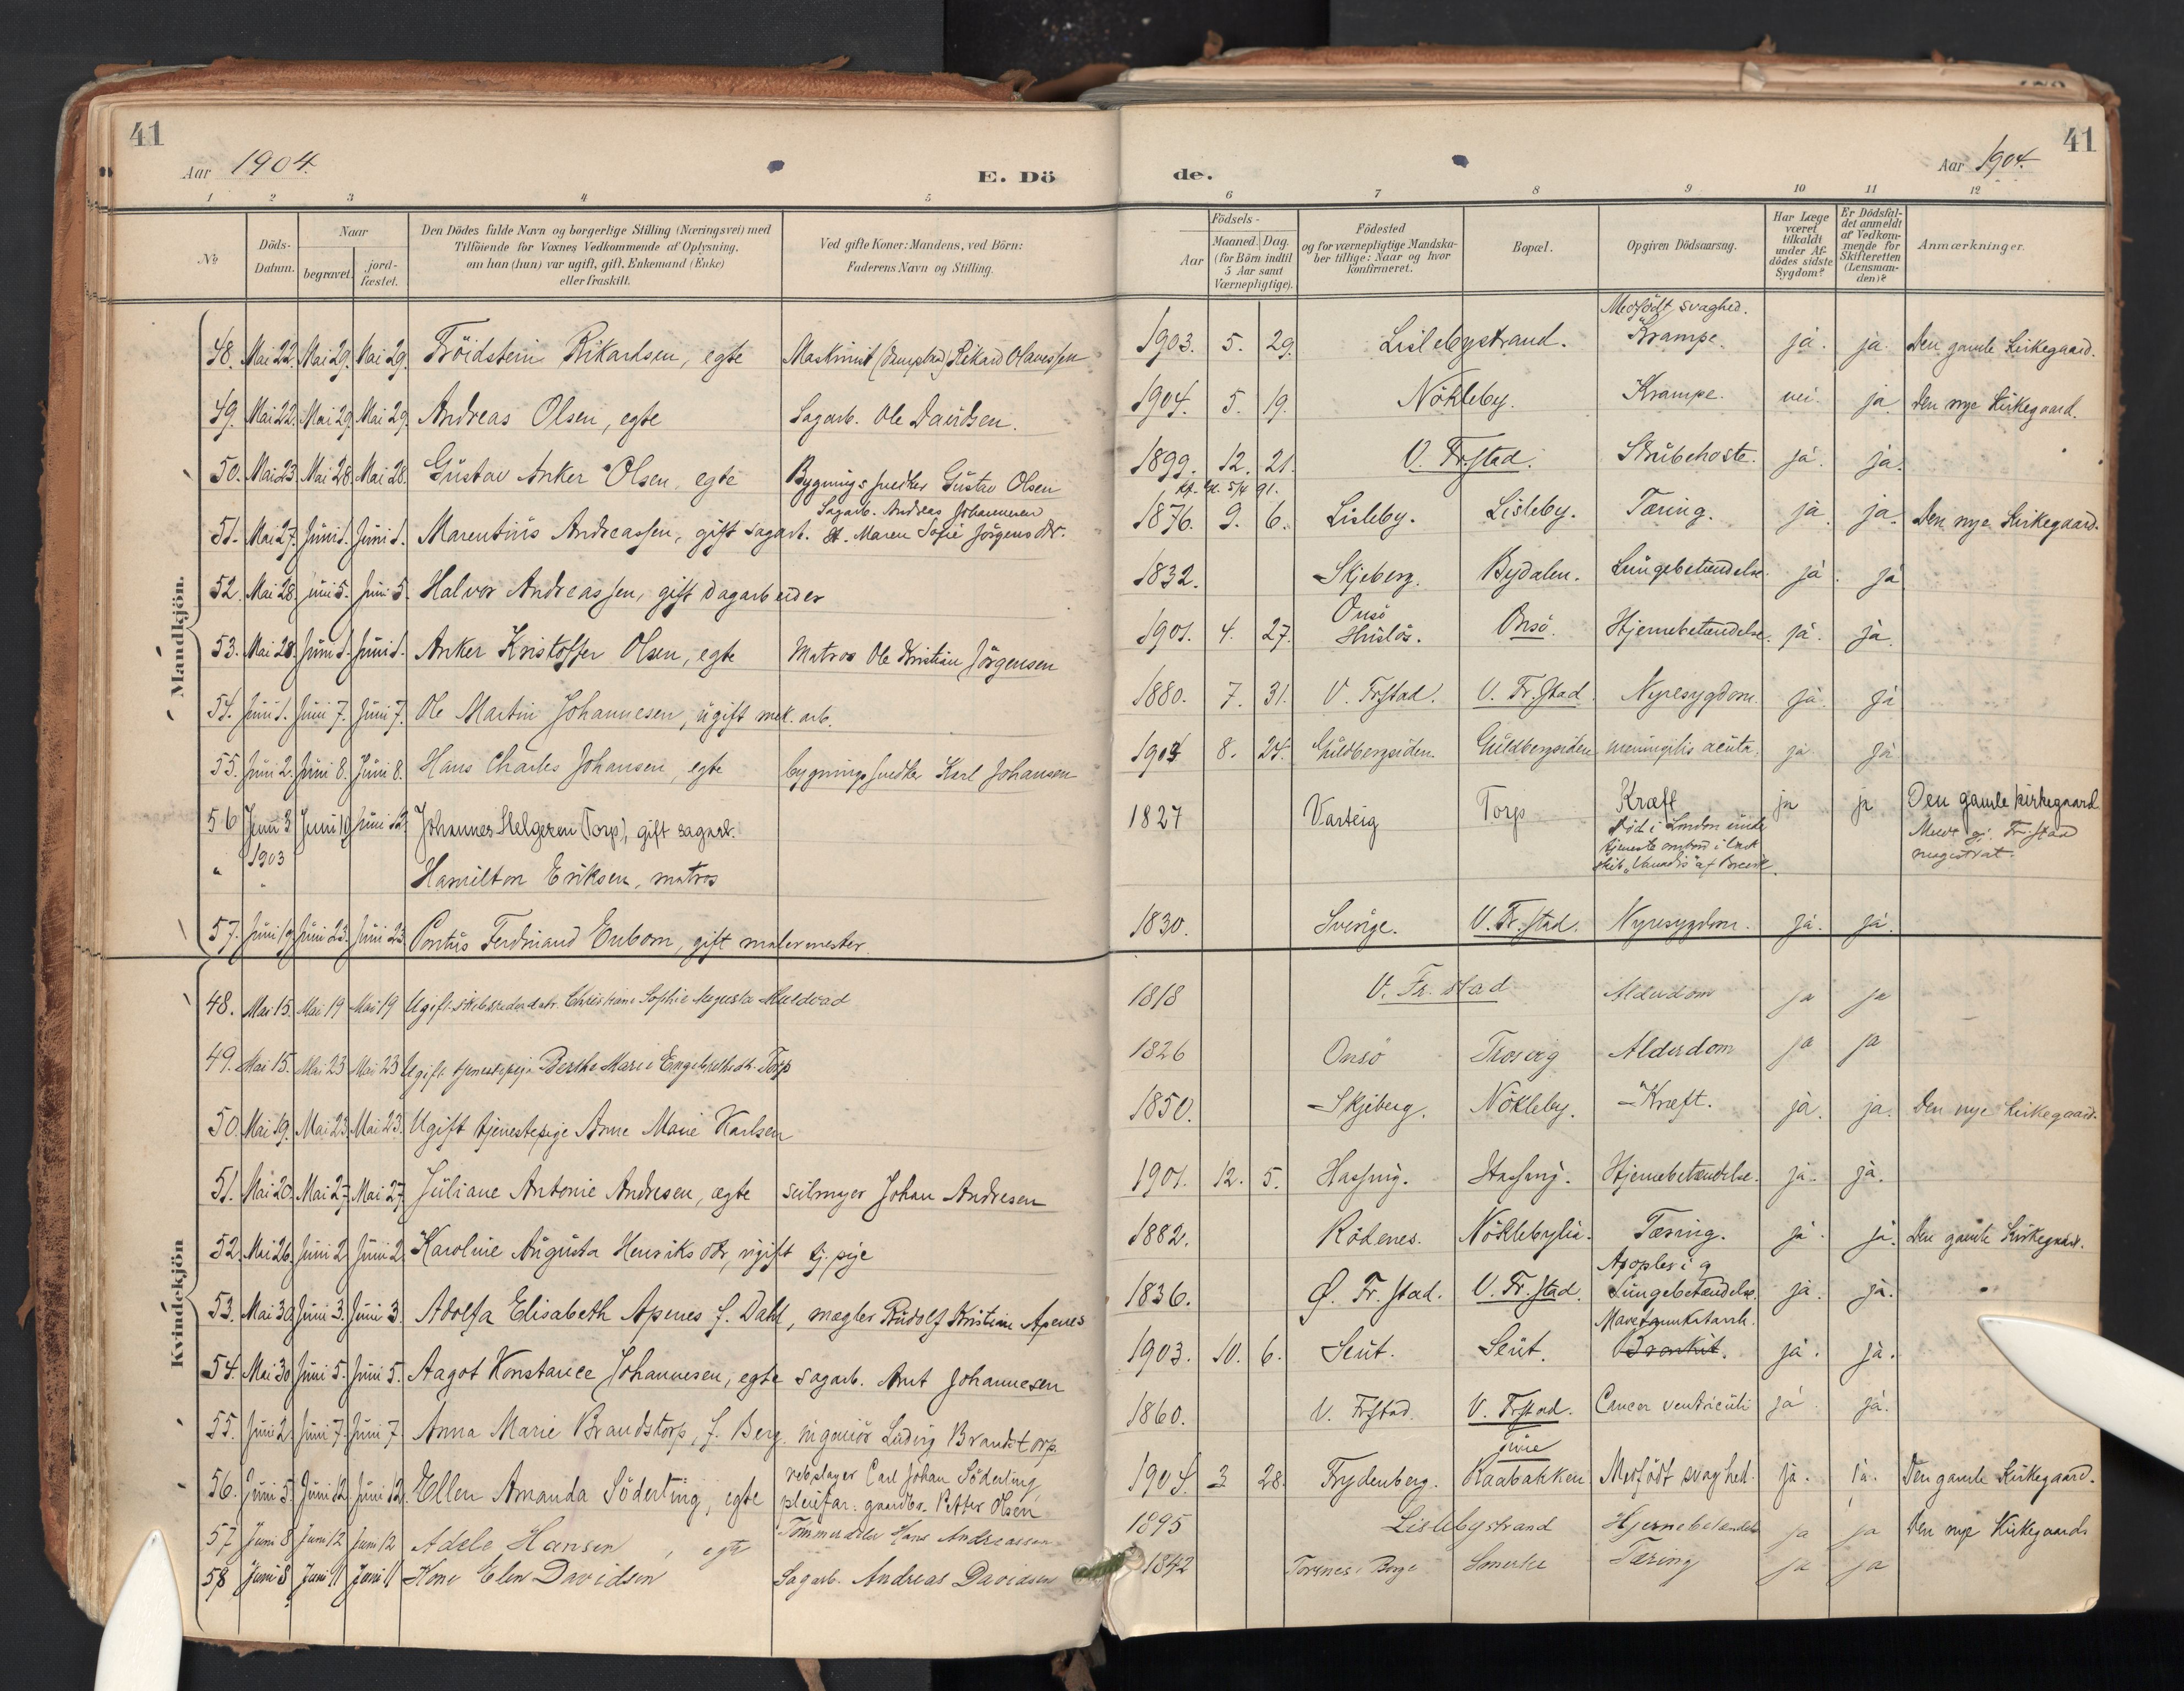 41
Aar 1904.
E. Dö
1 2 3 4 5
No
Döds-Datum.
Naar
begravet.
jord-fæstet.
Den Dödes fulde Navn og borgerlige Stilling (Næringsvei) med
Tilföiende for Voxnes Vedkommende af Oplysning,
om han (hun) var ugift, gift, Enkemand (Enke)
eller fraskilt.
Ved gifte Koner: Mandens, ved Börn:
Faderens Navn og Stilling.
Mandkjön.
48. Mai 22. Mai 29. Mai 29. Fröidstein Rikardsen, egte Maskinist Rikard Olavessen
49. Mai 22. Mai 29 Mai 29. Andreas Olsen, egte Sagarb. Ole Davidsen.
50. Mai 23. Mai 28. Mai 28. Gustav Anker Olsen, egte Bygningssnedker Gustav Olsen
Sagarb. Andreas Johannesen
51. Mai 27. Juni 1. Juni 1. Marentius Andreassen, gift sagarb. H. Maren Sofie Jörgensdtr.
52. Mai 28. Juni 5. Juni 5. Halvor Andreassen, gift dagarbeider
53. Mai 28. Juni 1. Juni 1. Anker Kristoffer Olsen, egte Matros Ole Kristian Jörgensen
54. Juni 1. Juni 7. Juni 7. Ole Martin Johannesen, ugift mek. arb.
55. Juni 2. Juni 8. Juni 8. Hans Charles Johansen, egte bygningssnedker Karl Johansen
56 Juni 3 Juni 10 Juni 12 Johannes Helgesen (Torp), gift sagarb.
" 1903 Hamilton Eriksen, matros
57. Juni 19 Juni 23. Juni 23 Pontus Ferdinand Enbom, gift malermester
Kvindekjön
48. Mai 15. Mai 19 Mai 19 Ugift skibsrederdatr. Christiane Sophie Augusta
49. Mai 15. Mai 23 Mai 23 Ugift tjenestepige Berthe Marie Engebrethsdt. Torp
50. Mai 19. Mai 23 Mai 23. Ugift tjenestepige Anne Marie Karlsen
51. Mai 20. Mai 27 Mai 27 Juliane Antonie Andresen, ægte seilmager Johan Andresen
52. Mai 26. Juni 2 Juni 2 Karoline Augusta Henriksdtr, ugift tj. pige
53. Mai 30. Juni 3. Juni 3. Adolfa Elisabeth Apenes f. Dahl, mægler Rudolf Kristian Apenes
54. Mai 30 Juni 5. Juni 5. Aagot Konstance Johannesen, egte sagarb. Anut Johannesen
55. Juni 2. Juni 7. Juni 7. Anna Marie Brandstorp, f. Berg. ingeniör Ludvig Brandstorp.
rebslager Carl Johan Söderling
56. Juni 5. Juni 12. Juni 12. Ellen Amanda Söderling, egte pleiefar: gaardbr. Petter Olsen
57 Juni 8 Juni 12 Juni 12 Adele Hansen, egte Tømmerdeler Hans Andreassen
58 Juni 8 Juni 11 Juni 11 Kone Elen Davidsen Sagarb. Andreas Davidsen
de.
Aar 1904.
41
6 7 8 9 10 11 12
Födsels-
Aar
Maaned. Dag.
(for Börn indtil
5 Aar samt
Værnepligtige).
Födested
og for værnepligtige Mandska-
ber tillige: Naar og hvor
konfirmeret.
Bopæl.
Opgiven Dödsaarsag.
Har Læge
været
tilkaldt
under Af-
dödes sidste
Sygdom?
Er Dödsfal-
det anmeldt
af Vedkom-
mende for
Skifteretten
(Lensman-
den)?
Anmærkninger.
Medfödt svaghed.
1903. 5. 29. Lislebystrand. Krampe. ja. ja. Den gamle Kirkegaard.
1904. 5. 19. Nökleby. Krampe. nei. ja. Den nye Kirkegaard.
1899. 12. 21. V. Fr.stad. Strubehoste. ja. ja.
5/4 91.
1876. 9. 6. Lisleby. Lisleby. Tæring. ja ja. Den nye Kirkegaard.
1832. Skjeberg. Bydalen. Lungebetændelse. ja. ja
Onsö
1901. 4. 27. Huslös. Onsö. Hjernebetændelse. ja. ja.
1880. 7. 31. V. Frstad. V. Fr.stad. Nyresygdom. ja. ja
1904 8. 24. Guldbergsiden. Guldbergsiden meningitis acuta. ja ja
1827 Varteig Torp Kræft ja ja Den gamle kirkegaard
Död i London under
tjeneste ombord i
skib "Vanadis" af
Medd. gj. Fr.stad
magistrat.
1830. Sverige. V. Fr.stad. Nyresygdom. ja. ja.
1818 V. Fr. stad Alderdom ja ja
1826 Onsö Trosvig Alderdom ja ja
1850. Skjeberg. Nökleby. Kræft. ja. ja. Den nye Kirkegaard.
1901. 12. 5. Hassing. Hassing. Hjernebetændelse. ja. ja.
1882. Rödenes. Nöklebylia. Tæring. ja. ja. Den gamle Kirkegaard.
Apoplexi og
1836. Ø. Fr.stad. V. Fr.stad. Lungebetændelse. ja. ja.
Mavetarmkatarrh.
1903. 10. 6. Seut. Seut. Bronkit. ja. ja.
1860. V. Frstad. V. Frstad. Cancer ventriculi ja. ja.
1904. 3 28. Frydenberg. Raabakken Medfödt svaghed. ja. ja. Den gamle Kirkegaard.
1895 Lislebystrand Hjernebetændelse ja ja Den nye Kirkegaard
1842 Torsnes i Borge Tæring ja ja